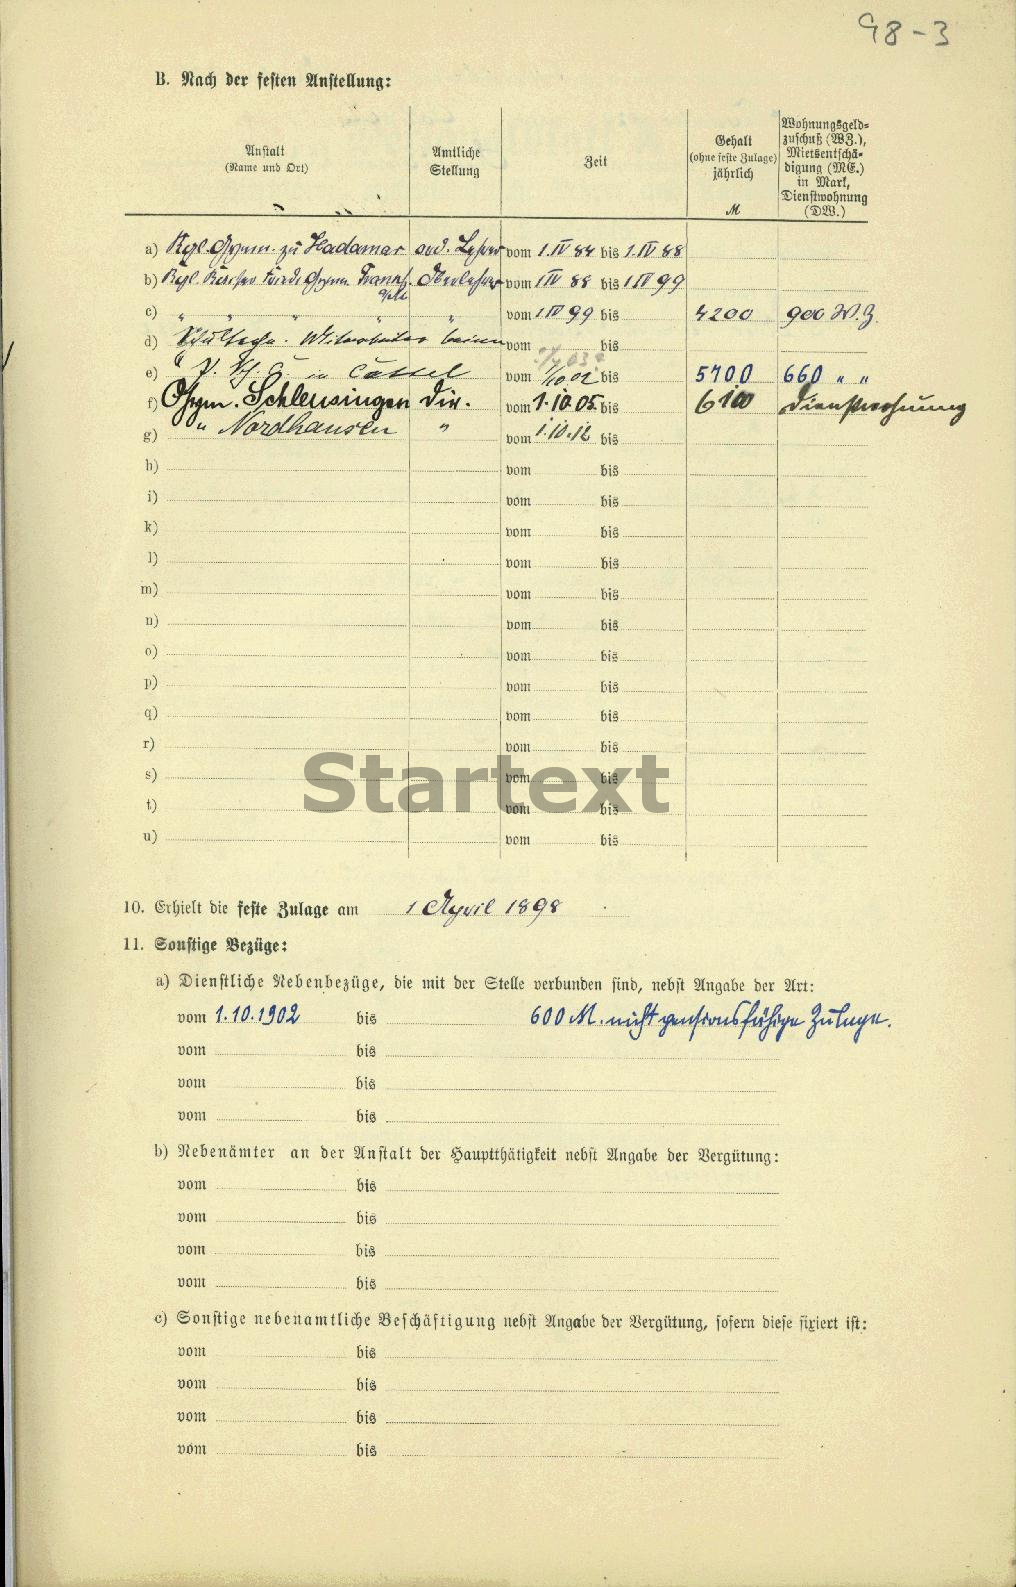 98-3
B. Nach der festen Anstellung:
Anstalt
(Name und Ort)
Amtliche
Stellung
Zeit
Gehalt
(ohne feste Zulage)
jährlich
M
Wohnungsgeld-
zuschuß (WZ.),
Mietsentschä-
digung (ME.)
in Mark,
Dienstwohnung
(DW.)
a) Kgl. Gymn. zu Hadamar ord. Lehrer vom 1.IV 84 bis 1.IV 88
b) Kgl. Kaiser Frieds Gymn. Frankf. Oberlehrer vom 1 IV 88 bis 1 IV 99
c) " " " " vom 1.IV 99 bis 4200 900 W.Z.
d) beim vom bis
e) " P. Sch. C. in Cassel vom 1/10 02 bis 5700 660 " "
f) Gymn. Schleusingen Dir. vom 1.10.05 bis 6100 Dienstwohnung
g) " Nordhausen " vom 1.10.12 bis
h) vom bis
i) vom bis
k) vom bis
l) vom bis
m) vom bis
n) vom bis
o) vom bis
p) vom bis
q) vom bis
r) vom bis
s) vom bis
t) vom bis
u) vom bis
Startext
10. Erhielt die feste Zulage am 1 April 1898
11. Sonstige Bezüge:
a) Dienstliche Nebenbezüge, die mit der Stelle verbunden sind, nebst Angabe der Art:
vom 1.10.1902 bis 600 M. nicht pensionsfähige Zulage.
vom bis
vom bis
vom bis
b) Nebenämter an der Anstalt der Hauptthätigkeit nebst Angabe der Vergütung:
vom bis
vom bis
vom bis
vom bis
c) Sonstige nebenamtliche Beschäftigung nebst Angabe der Vergütung, sofern diese fixiert ist:
vom bis
vom bis
vom bis
vom bis